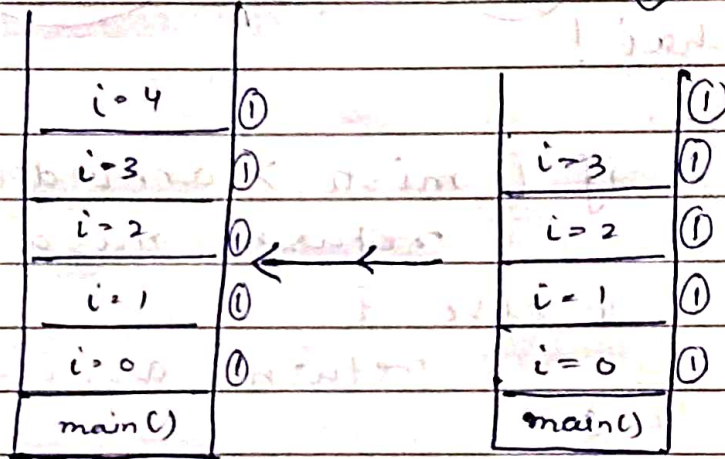 i = 4 ①
i = 3 ①
i = 2 ①
i = 1 ①
i = 0 ①
main()
①
i = 3 ①
i = 2 ①
i = 1 ①
i = 0 ①
main()